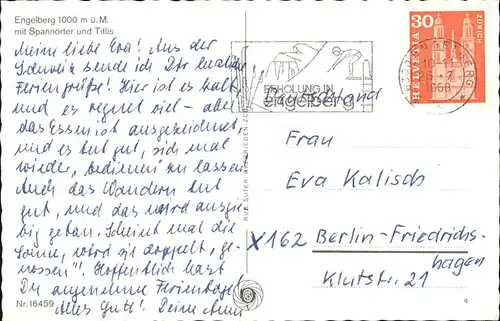 Engelberg 1000 m ü. M.
mit Spannörter und Titlis
Meine liebe Eva! Aus der
Schweiz sende ich Dir herzliche
Feriengrüße! Hier ist es kalt
und es regnet viel – aber
das Essen ist ausgezeichnet,
und es tut gut, sich mal
wieder „bedienen" zu lassen.
Auch das Wandern tut
gut, und das wird ausgie-
big getan. Scheint mal die
Sonne, wird sie doppelt „ge-
nossen"! Hoffentlich hast
Du angenehme Ferientage!
Alles Gute! Deine
Nr. 16459
RUD. SUTER
ERHOLUNG IN
engelberg
Deutschland
ENGELBERG
26. 7.
1968
30
HELVETIA
ZÜRICH
Frau
Eva Kalisch
X162 Berlin-Friedrichs-
hagen
Klutstr. 21
q